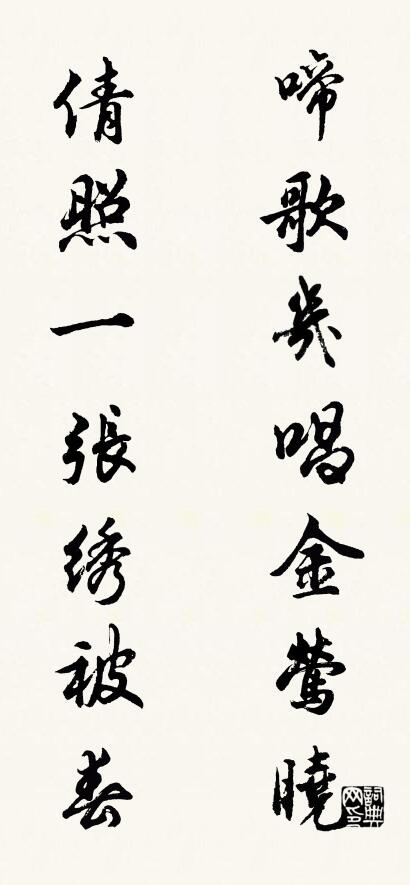 啼歌幾唱金鶯曉
倩照一張綉被春
詞典網印